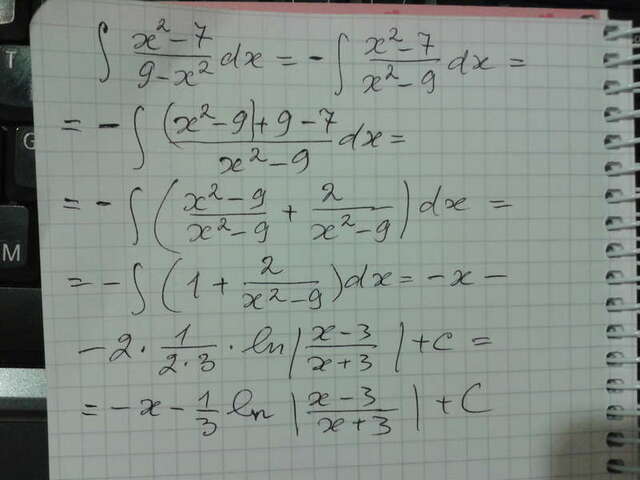 T
M
∫ (x²-7)/(9-x²) dx = -∫ (x²-7)/(x²-9) dx =
= -∫ ((x²-9)+9-7)/(x²-9) dx =
= -∫ ((x²-9)/(x²-9) + 2/(x²-9)) dx =
= -∫ (1 + 2/(x²-9)) dx = -x -
-2 · 1/(2·3) · ln |(x-3)/(x+3)| + c =
= -x - 1/3 ln |(x-3)/(x+3)| + C